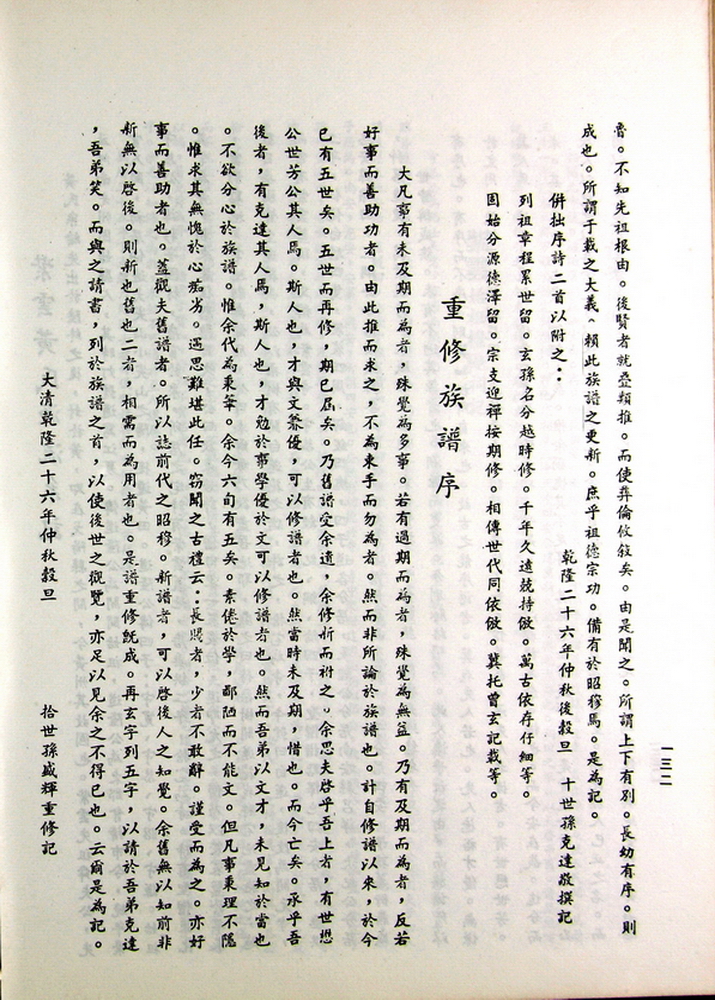 魯。不知先祖根由。後賢者就叠類推。而使彝倫攸敘矣。由是聞之。所謂上下有別。長幼有序。則
成也。所謂千載之大義，賴此族譜之更新。庶乎祖德宗功。備有於昭穆焉。是為記。
乾隆二十六年仲秋後穀旦　十世孫克達敬撰記
併拙序詩二首以附之：
列祖章程累世留。玄孫名分越時修。千年久遠競持倣。萬古依存仔細等。
固始分源德澤留。宗支迎禪按期修。相傳世代同依倣。冀托曾玄記載等。
重修族譜序
大凡事有未及期而為者，殊覺為多事。若有過期而為者，殊覺為無益。乃有及期而為者，反若
好事而善助功者。由此推而求之，不為束手而勿為者。然而非所論於族譜也。計自修譜以來，於今
已有五世矣。五世而再修，期已屆矣。乃舊譜受余遺，余修忻而祔之。余思夫啓乎吾上者，有世懋
公世芳公其人焉。斯人也，才與文兼優，可以修譜者也。然當時未及期，惜也。而今亡矣。承乎吾
後者，有克達其人焉，斯人也，才勉於事學優於文可以修譜者也。然而吾弟以文才，未見知於當也
。不欲分心於族譜。惟余代為秉筆。余今六旬有五矣。素倦於學，鄙陋而不能文。但凡事秉理不隱
。惟求其無愧於心痴劣。遥思難堪此任。窃聞之古禮云：長賜者，少者不敢辭。謹受而為之。亦好
事而善助者也。蓋觀夫舊譜者。所以誌前代之昭穆。新譜者，可以啓後人之知覺。余舊無以知前非
新無以啓後。則新也舊也二者，相需而為用者也。是譜重修既成。再玄字列五字，以請於吾弟克達
，吾弟笑。而與之請書，列於族譜之首，以使後世之觀覽，亦足以見余之不得已也。云爾是為記。
大清乾隆二十六年仲秋穀旦　拾世孫盛輝重修記
一三二